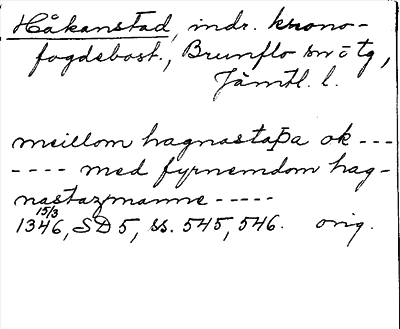 Håkanstad, indr. krono-
fogdebost., Brunflo sn o tg,
Jämtl. l.
meillom hagnastaþa ok ---
---- med fyrnemdom hag-
nastazmanne -----
15/3
1346, SD 5, ss. 545, 546. orig.